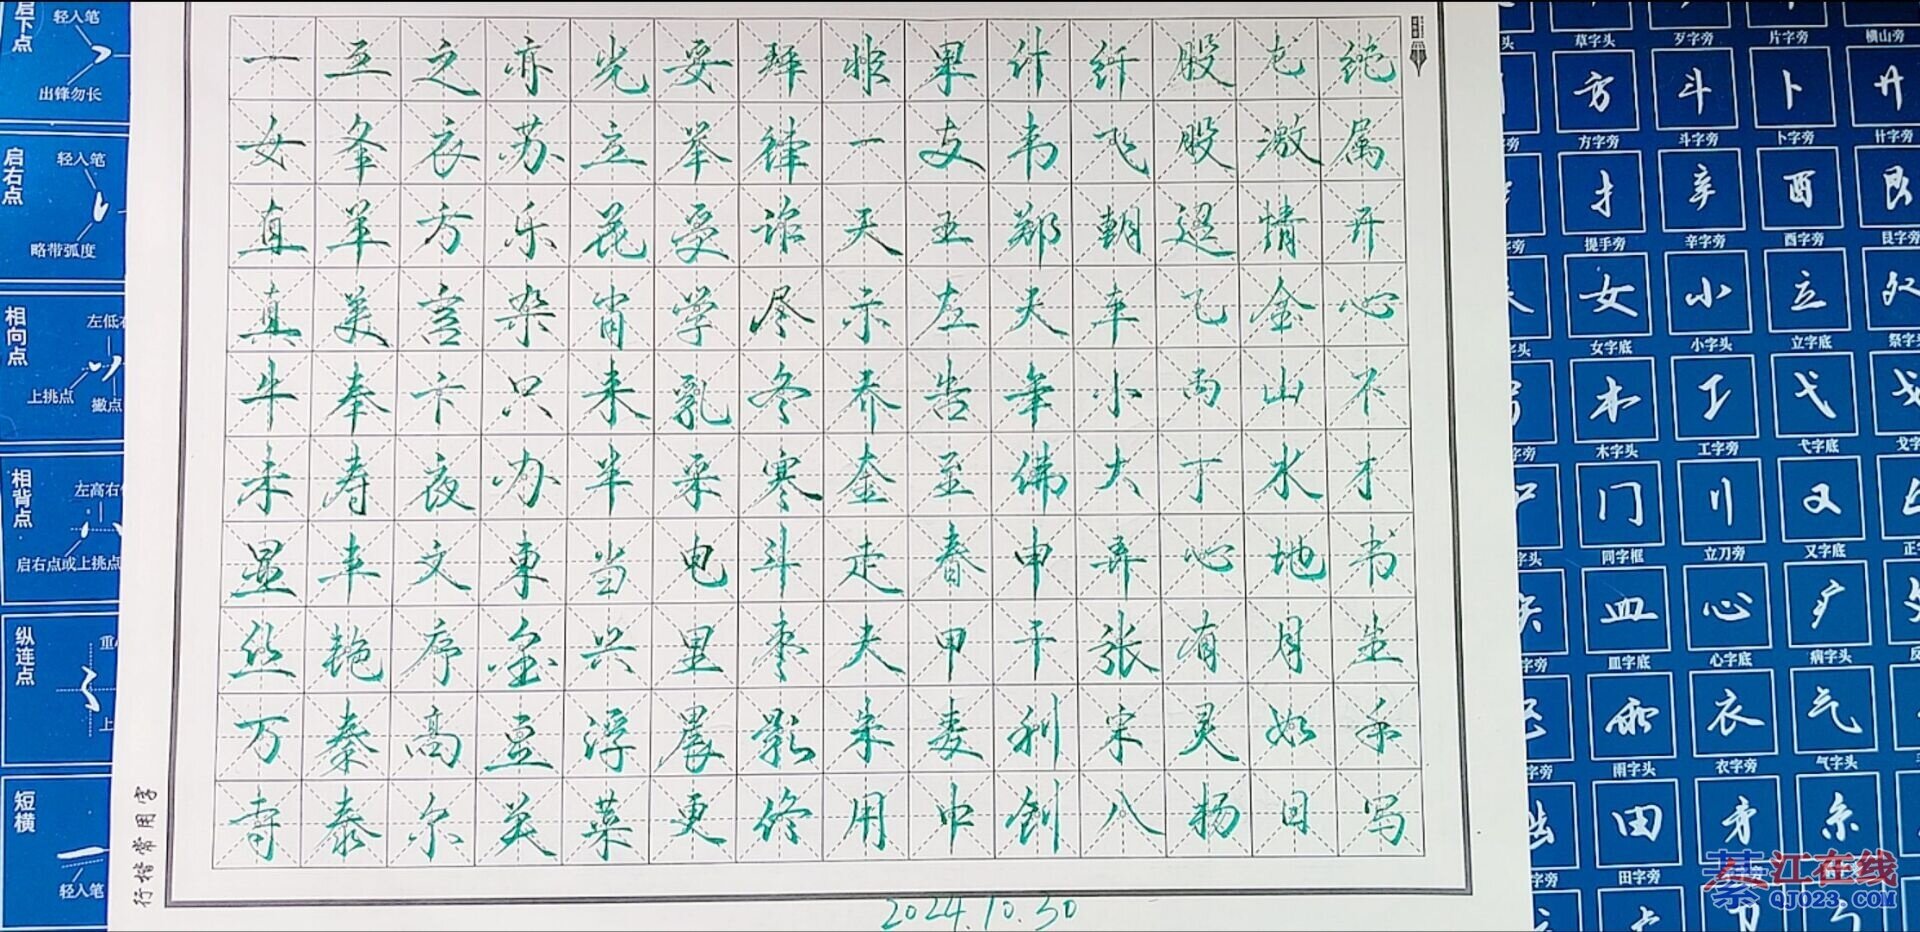 启下点
轻入笔
出锋勿长
启右点
轻入笔
略带弧度
相向点
上挑点
撇点
相背点
启右点或上挑点
纵连点
短横
轻入笔
一五之亦光要拜非果什纤股龙绝
女夆衣苏立举律一支韦飞股激属
直羊方乐花受诈天五郑朝迢情开
真美言杂肖学尽示左天车飞金心
牛奉卞只来乳冬乔告年小而山不
未寿夜办半采寒奎至佛大丁水才
显丰文东当电斗走春申弄心地书
丝艳序金兴里枣夫甲干张有月生
万秦高豆浮晨影朱麦利宋灵如手
寺泰尔英菜更修用中创八扬日写
行楷常用字
2024.10.30
草字头 歹字旁 片字旁 横山旁
方 斗 卜
方字旁 斗字旁 卜字旁 廾字旁
扌 辛 酉 艮
提手旁 辛字旁 酉字旁 艮字旁
女 小 立
女字底 小字头 立字底 祭字头
木 工 弋
木字头 工字旁 弋字底
门 刂 又
同字框 立刀旁 又字底
皿 心 疒
皿字底 心字底 病字头
雨 衣 气
雨字头 衣字旁 气字头
田 矛
田字旁
綦江在线
QJ023.COM